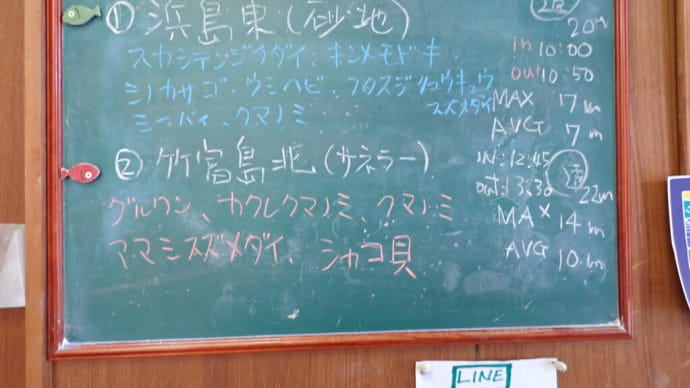 ① 浜島東(砂地)
スカシテンジクダイ、キンメモドキ
ミノカサゴ、ウミヘビ、フタスジリュウキュウ
スズメダイ
ミーバイ、クマノミ
② 竹富島北(サネラー)
グルクン、カクレクマノミ、クマノミ
ママミスズメダイ、シャコ貝
透
20m
in 10:00
out 10:50
MAX 17m
AVG 7m
in:12:45
out:13:30
透
22m
MAX 14m
AVG 10m
LINE